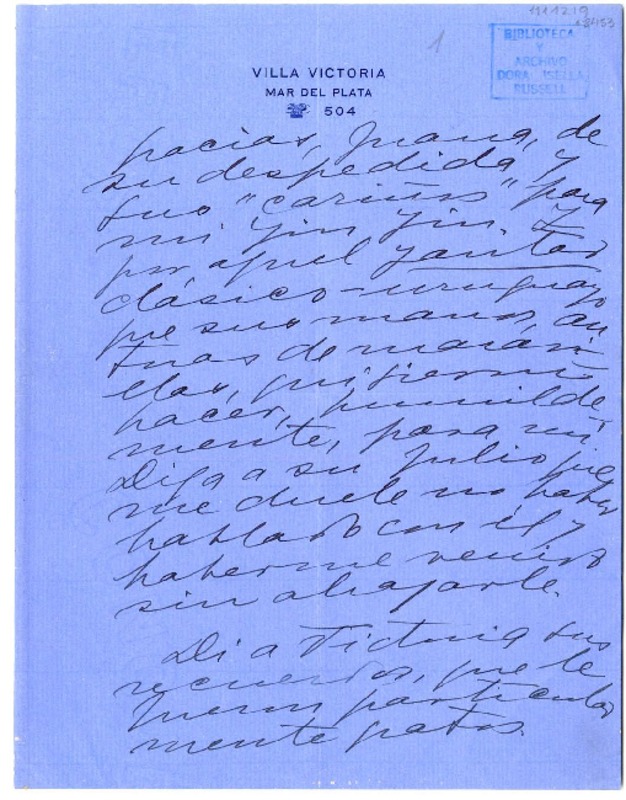 111219
VILLA VICTORIA
MAR DEL PLATA
504
BIBLIOTECA
Y
ARCHIVO
DORA ISELLA
RUSSELL
1
Gracias, Juana, de
su despedida, y
sus "cariños" para
mi Yin Yin. Y
por aquel yantar
clásico-uruguayo
que sus manos, au
tuas de maravi
llas, quisieron
hacer, humilde,
mente, para mí.
Diga a su Julio que
me duele no haber
hablado con él y
haberme venido
sin abrazarle.
Di a Victoria sus
recuerdos, que le
fueron particular
mente gratos.